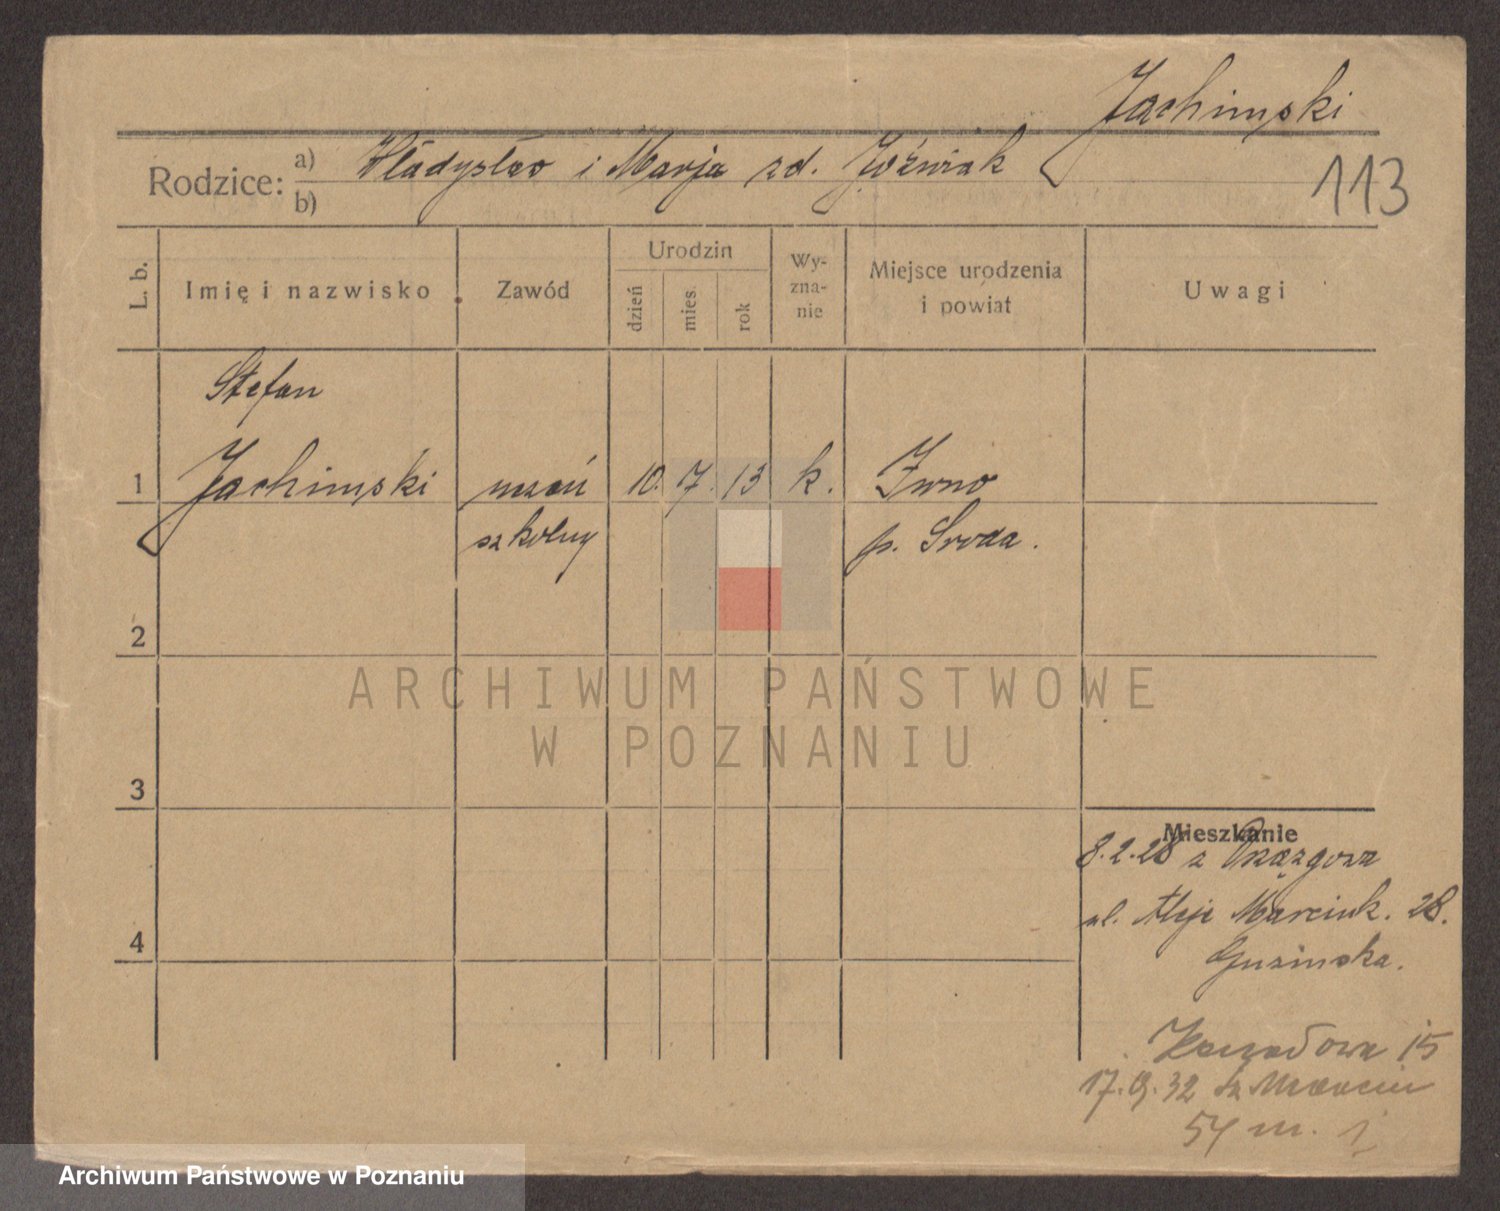 Jachimski
Rodzice: a) Władysław i Marja zd. Jóźwiak
b)
113
L. b.
Imię i nazwisko
Zawód
Urodzin
dzień
mies.
rok
Wy-
zna-
nie
Miejsce urodzenia
i powiat
Uwagi
Stefan
1 Jachimski uczeń 10. 7. 13 k. Iwno
szkolny p. Sroda.
2
ARCHIWUM PAŃSTWOWE
W POZNANIU
3
Mieszkanie
8.2.28 z
ul. Aleje Marcink. 28.
4
15
17. 9. 32
54 m. 1
Archiwum Państwowe w Poznaniu